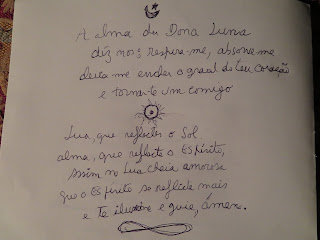 A alma da Dona Lursa
diz nos: respira-me, absorve-me
deixa me encher o graal do teu coração
e torna-te um comigo
Lua, que reflectes o Sol.
alma, que reflecte o Espírito,
assim na Lua cheia amorosa
que o Espírito se reflicta mais
e te ilumine e guie, Amen.